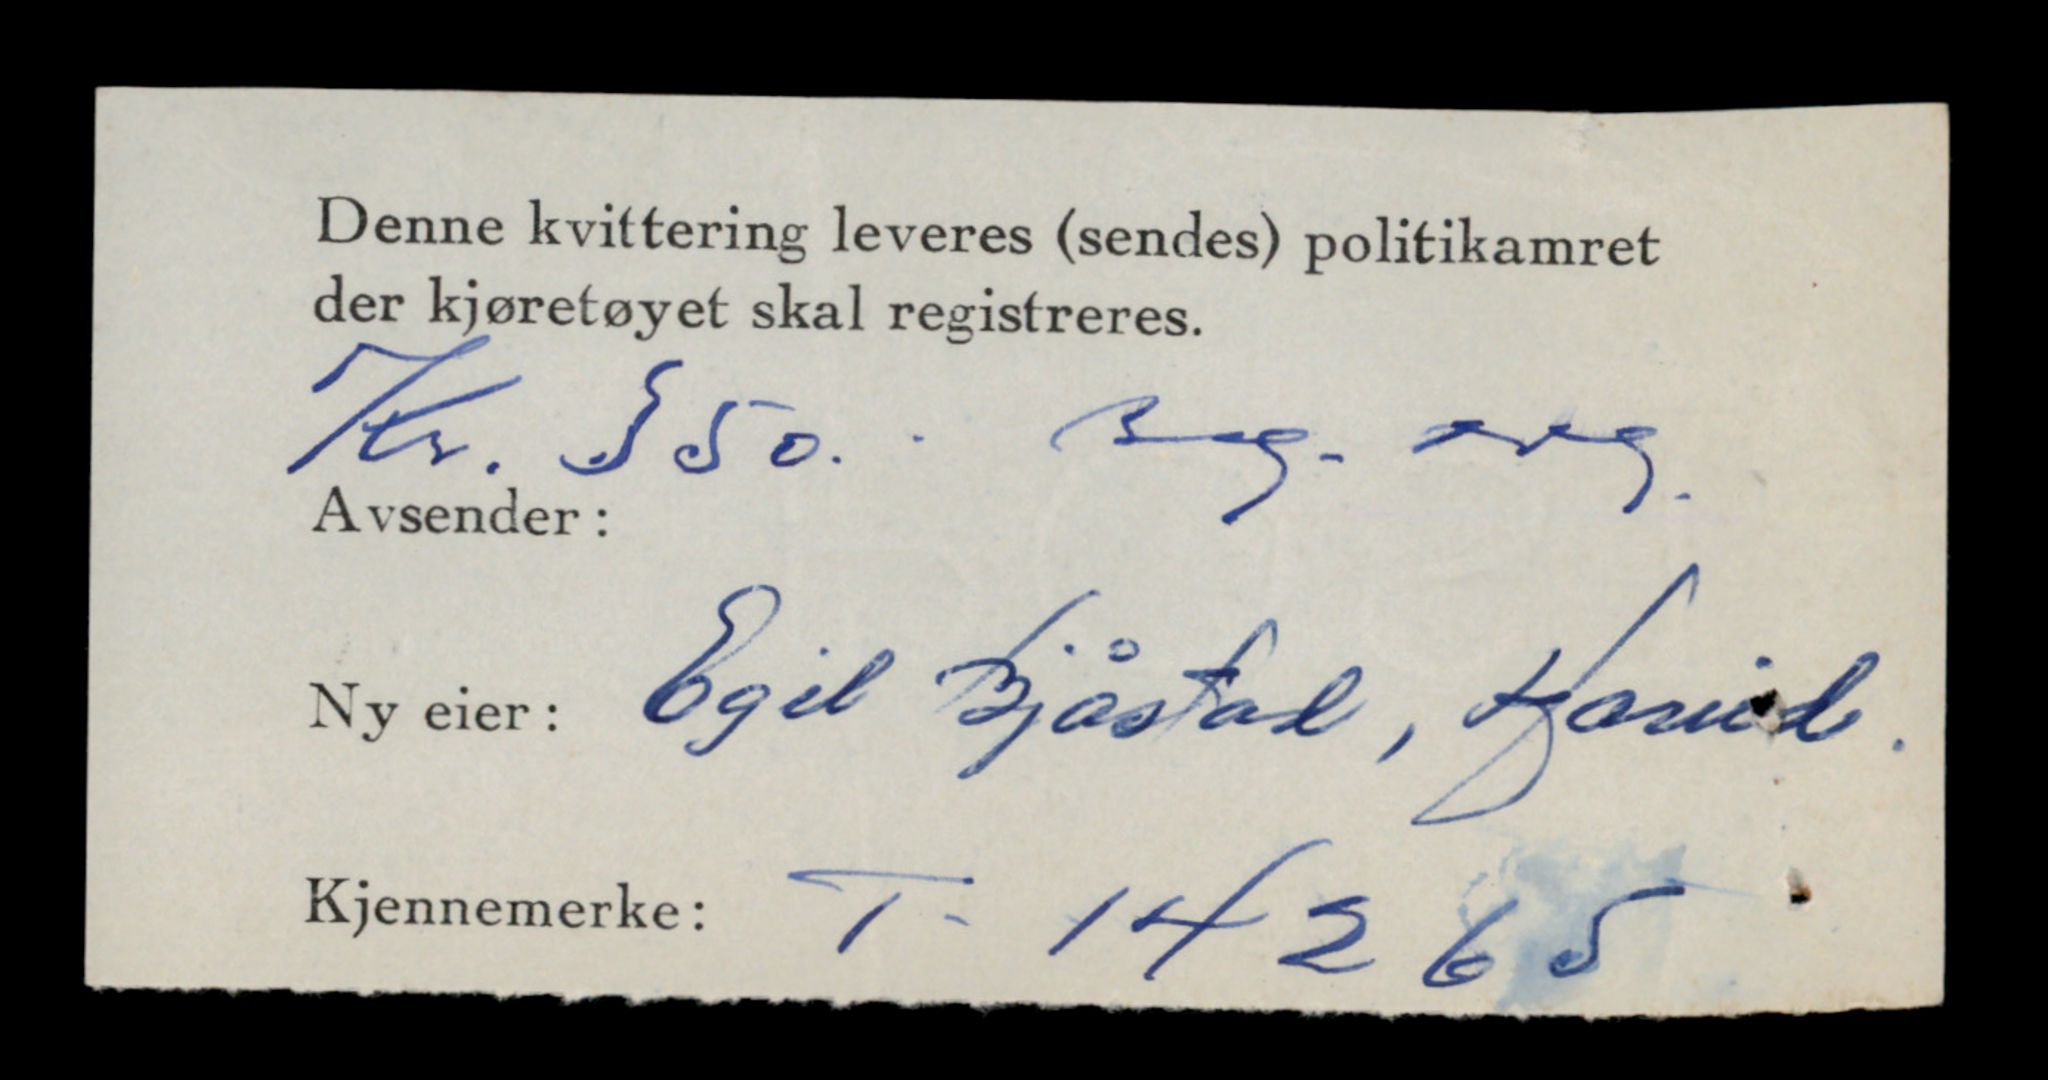 Denne kvittering leveres (sendes) politikamret
der kjøretøyet skal registreres.
Kr. 550. Beg. avg.
Avsender:
Ny eier: Egil Bjåstad,
Kjennemerke: T- 14265